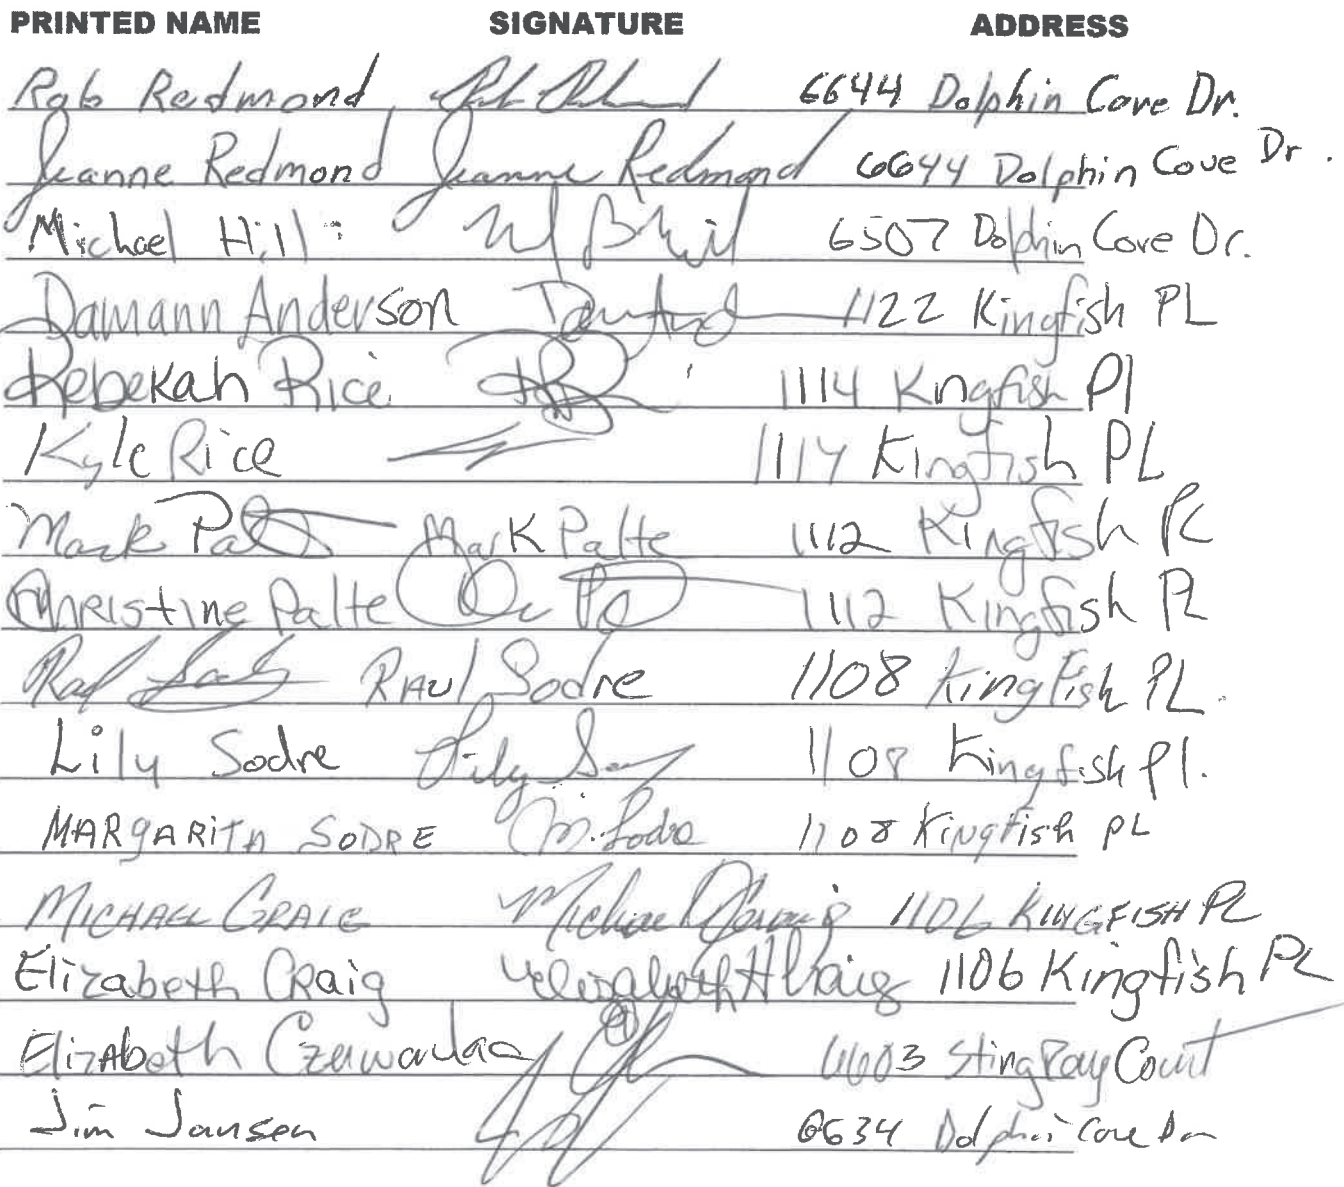 PRINTED NAME SIGNATURE ADDRESS
Rob Redmond 6644 Dolphin Cove Dr.
Jeanne Redmond Jeanne Redmond 6644 Dolphin Cove Dr.
Michael Hill 6507 Dolphin Cove Dr.
Damann Anderson 1122 Kingfish PL
Rebekah Rice 1114 Kingfish Pl
Kyle Rice 1114 Kingfish PL
Mark Mark Palte 1112 Kingfish PL
Christine Palte 1112 Kingfish PL
RAUL Sodre 1108 KingFish PL.
Lily Sodre Lily 1108 Kingfish Pl.
MARGARITA SODRE M. Sodre 1108 KingFish PL
MICHAEL CRAIG 1106 KINGFISH PL
Elizabeth CRaig Elizabeth H Craig 1106 Kingfish PL
ElizAbeth 6603 StingRay Court
Jim Jansen 6634 Dolphin Cove